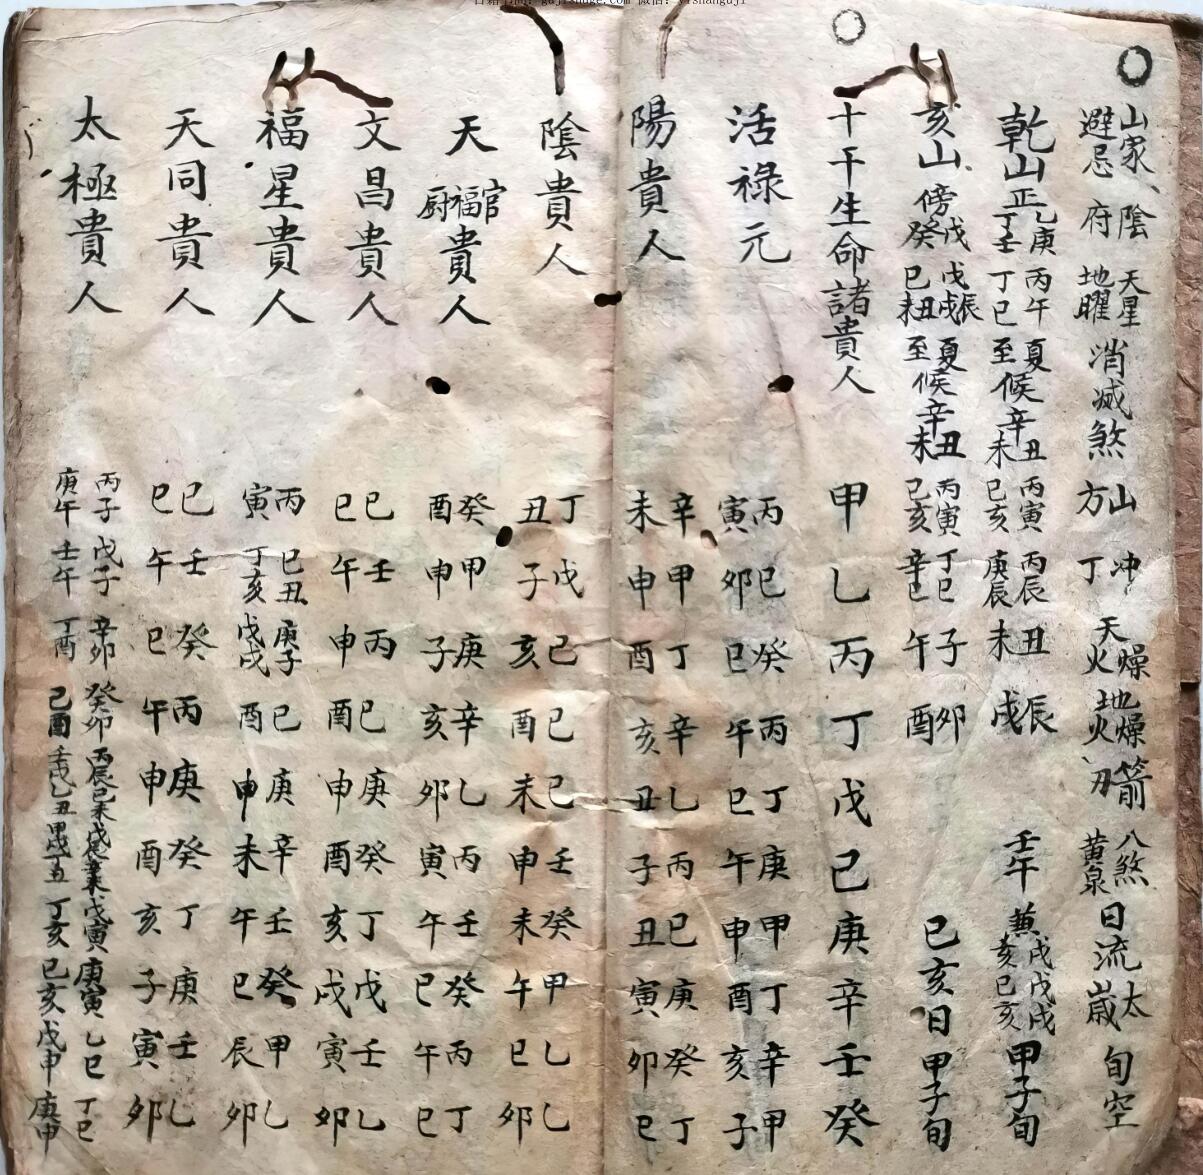 山家避忌 陰府 天星地曜 消滅煞方 山方 冲丁 天火燥地火燥 箭刃 八煞黄泉 日流太歲 旬空
乾山 正 乙庚丁壬 丙午丁巳 夏至候 辛丑未 丙寅己亥 丙辰庚辰 丑未 辰戌 壬午 兼戌戌戌亥己亥 甲子旬
亥山 傍 戊癸 戊辰戊戌己丑未 夏至候 辛丑未 丙寅己亥 丁巳辛巳 子午 卯酉 己亥日 甲子旬
十干生命諸貴人 甲 乙 丙 丁 戊 己 庚 辛 壬 癸
活祿元 丙寅 己卯 癸巳 丙午 丁巳 庚午 甲申 丁酉 辛亥 甲子
陽貴人 辛未 甲申 丁酉 辛亥 乙丑 丙子 己丑 庚寅 癸卯 丁巳
陰貴人 丁丑 戊子 己亥 己酉 己未 壬申 癸未 甲午 乙巳 乙卯
天官福厨貴人 癸酉 甲申 庚子 辛亥 乙卯 丙寅 壬午 癸巳 丙午 丁巳
文昌貴人 己巳 壬午 丙申 己酉 庚申 癸酉 丁亥 戊戌 壬寅 乙卯
福星貴人 丙寅 己丑丁亥 庚子戊戌 己酉 庚申 辛未 壬午 癸巳 甲辰 乙卯
天同貴人 己巳 壬午 癸巳 丙午 庚申 癸酉 丁亥 庚子 壬寅 乙卯
太極貴人 丙子庚午 戊子壬午 辛卯丁酉 癸卯己酉 丙辰 己未 壬戌乙丑 戊寅丁亥 庚寅己亥 乙巳戊申 丁巳庚申